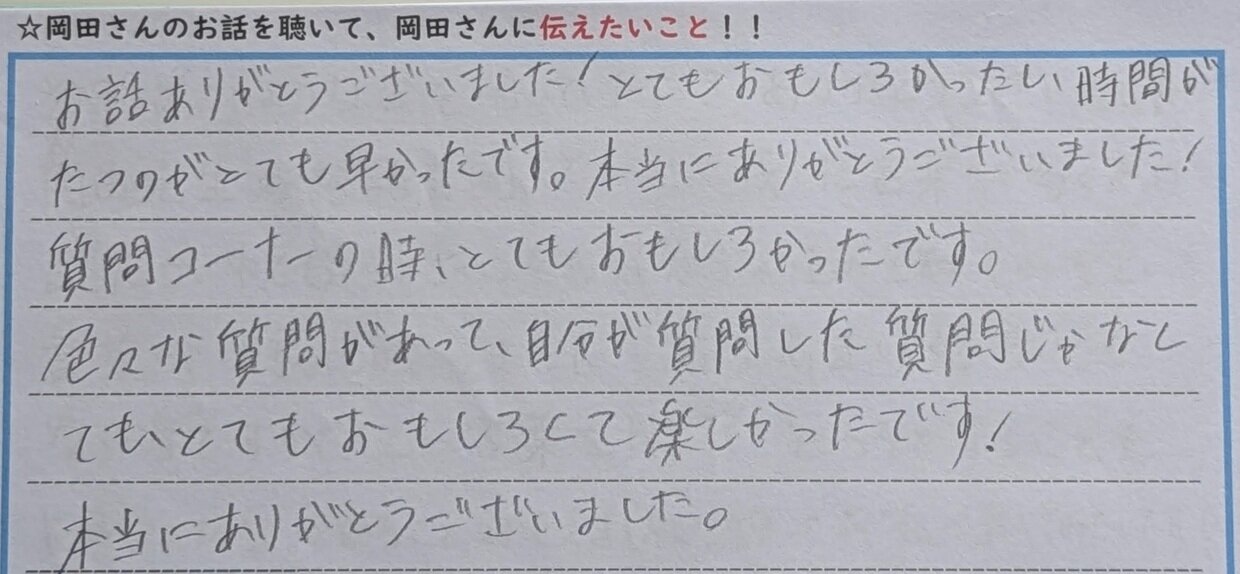 ☆岡田さんのお話を聴いて、岡田さんに伝えたいこと！！
お話ありがとうございました!とてもおもしろかったし、時間が
たつのがとても早かったです。本当にありがとうございました!
質問コーナーの時、とてもおもしろかったです。
色々な質問があって、自分が質問した質問じゃなく
ても、とてもおもしろくて楽しかったです!
本当にありがとうございました。